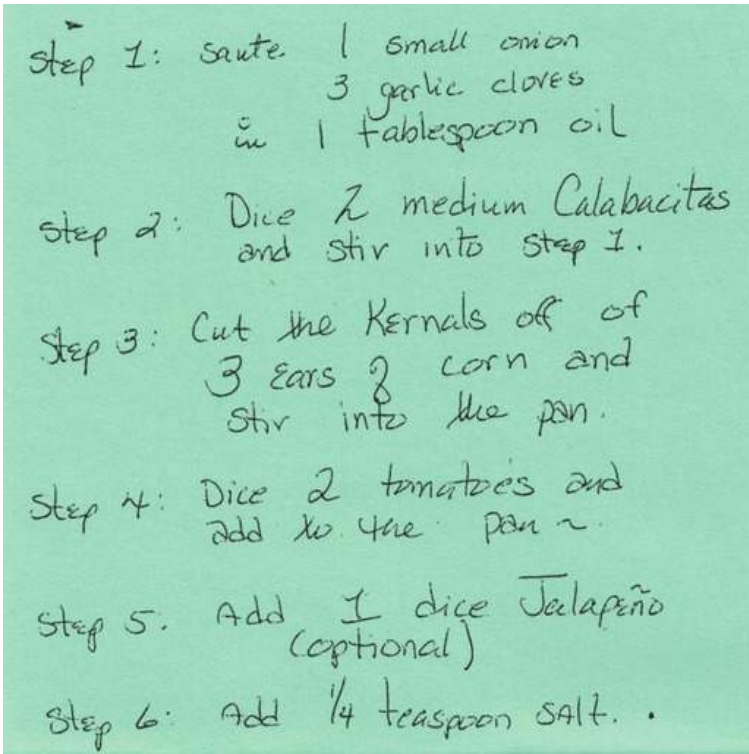 Step 1: Saute 1 small onion
3 garlic cloves
in 1 tablespoon oil
Step 2: Dice 2 medium Calabacitas
and stir into Step 1.
Step 3: Cut the Kernals off of
3 Ears of corn and
stir into the pan.
Step 4: Dice 2 tomatoes and
add to the pan ~
Step 5. Add 1 dice Jalapeño
(optional)
Step 6: Add 1/4 teaspoon SAlt. .